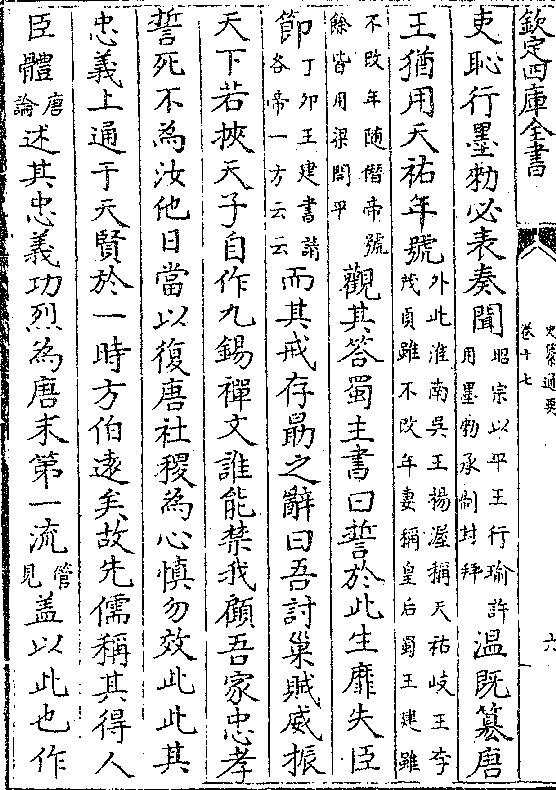 欽定四庫全書
史纂通要
卷十七
六
吏恥行墨勅必表奏聞昭宗以平王行瑜許用墨勅承制封拜温既簒唐
王猶用天祐年號外此淮南吳王楊渥稱天祐岐王李茂貞雖不改年妻稱皇后蜀王建雖
不改年随僭帝號餘皆用梁開平觀其答蜀主書曰誓於此生靡失臣
節丁卯王建書請各帝一方云云而其戒存勗之辭曰吾討巢賊威振
天下若挾天子自作九錫禪文誰能禁我顧吾家忠孝
誓死不為汝他日當以復唐社稷為心慎勿效此此其
忠義上通于天賢於一時方伯逺矣故先儒稱其得人
臣體唐論述其忠義功烈為唐末第一流管見盖以此也作